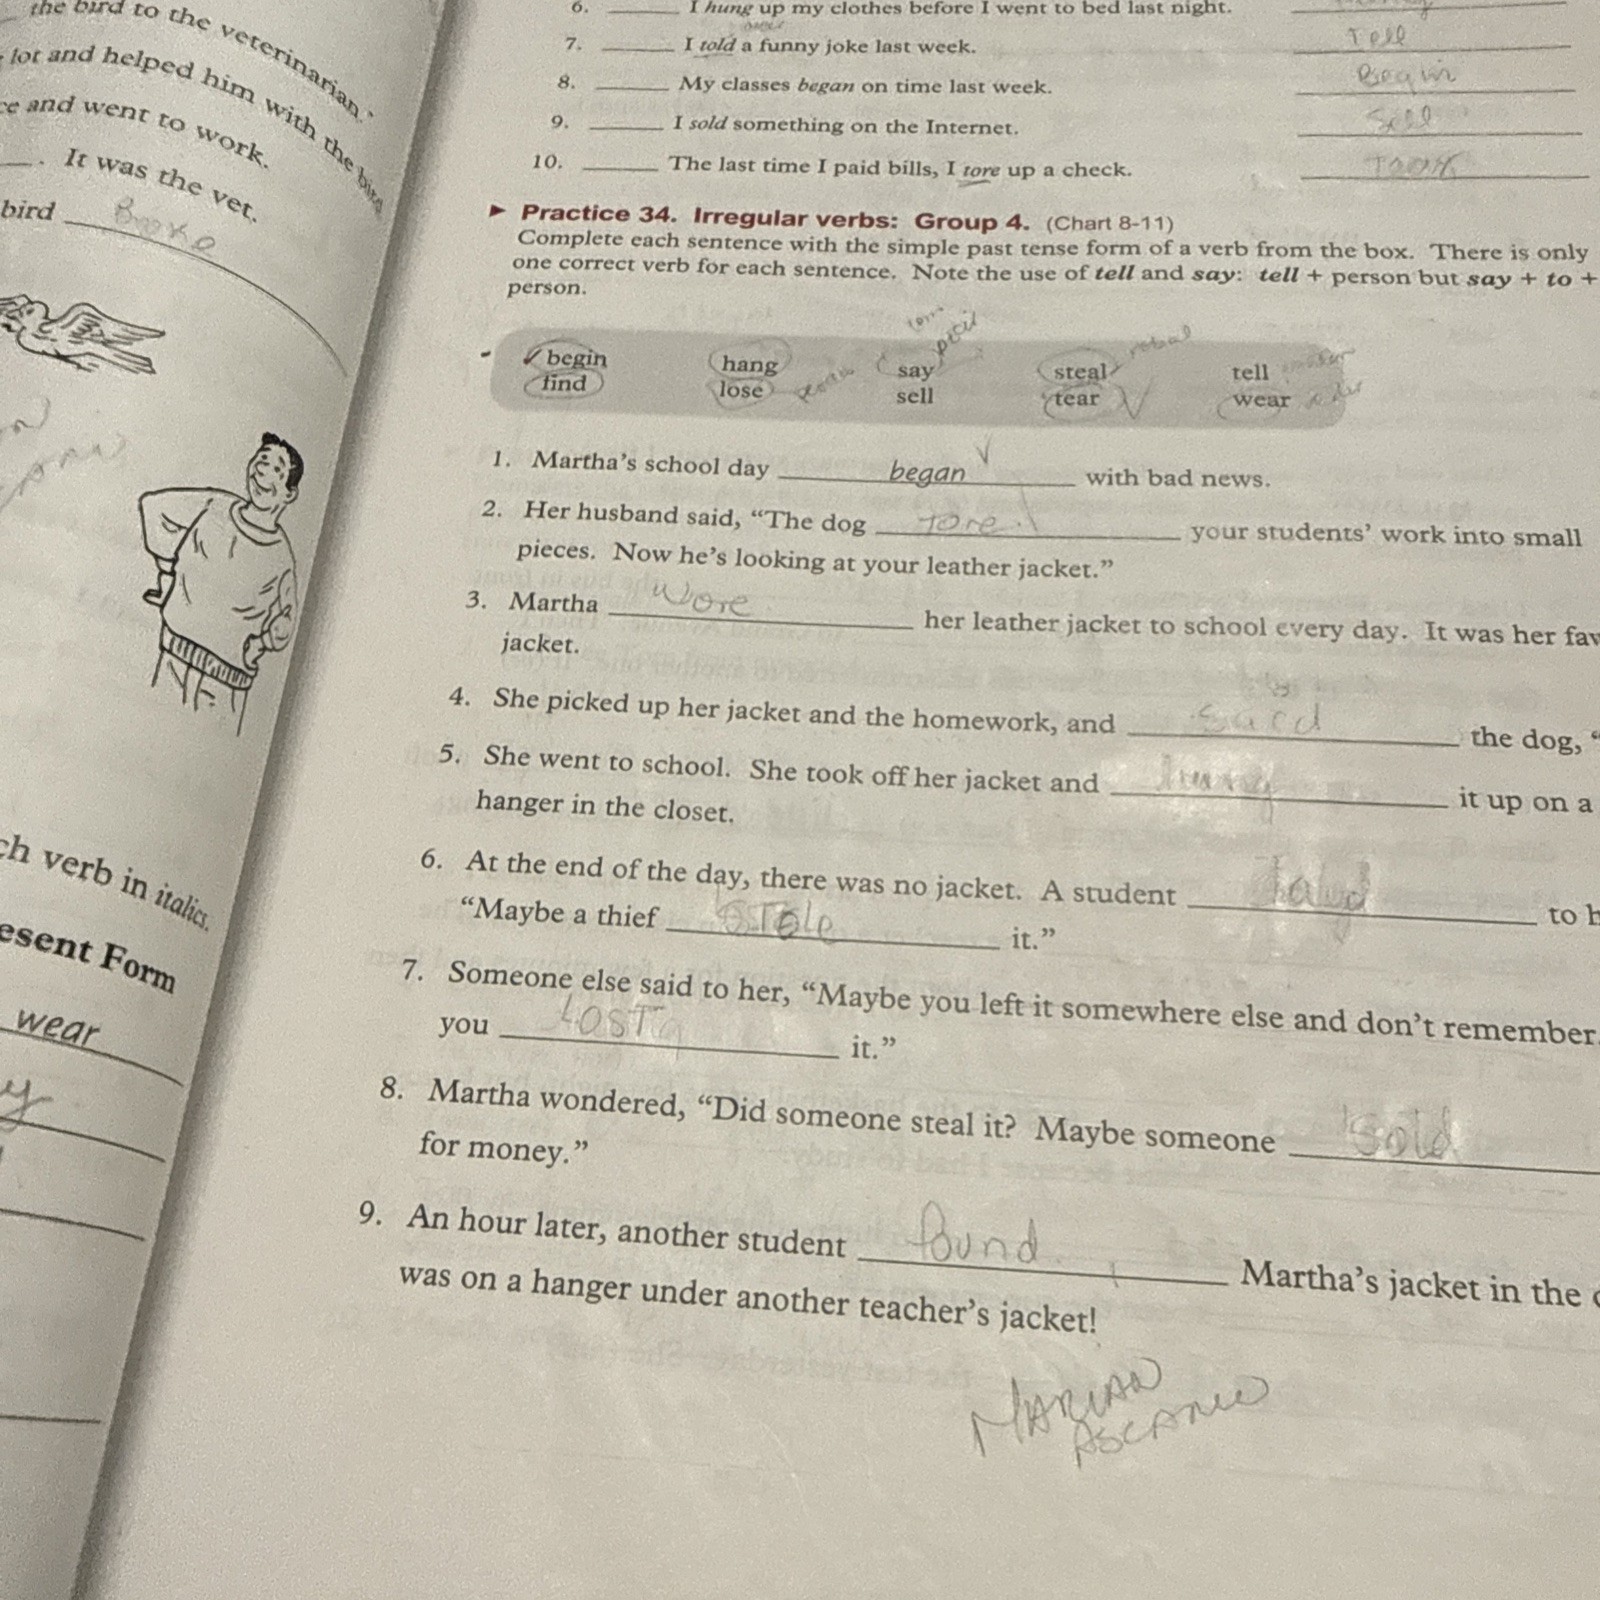 the bird to the veterinarian."
lot and helped him with the bird
ce and went to work.
. It was the vet.
bird Broke
ch verb in italics.
esent Form
wear
y
6. I hung up my clothes before I went to bed last night.
7. I told a funny joke last week. Tell
8. My classes began on time last week. Begin
9. I sold something on the Internet. Sell
10. The last time I paid bills, I tore up a check.
► Practice 34. Irregular verbs: Group 4. (Chart 8-11)
Complete each sentence with the simple past tense form of a verb from the box. There is only
one correct verb for each sentence. Note the use of tell and say: tell + person but say + to +
person.
✓ begin hang say steal tell
find lose sell tear wear
1. Martha's school day began with bad news.
2. Her husband said, "The dog Tore your students' work into small
pieces. Now he's looking at your leather jacket."
3. Martha Wore her leather jacket to school every day. It was her fav
jacket.
4. She picked up her jacket and the homework, and the dog, "
5. She went to school. She took off her jacket and hung it up on a
hanger in the closet.
6. At the end of the day, there was no jacket. A student to h
"Maybe a thief STole it."
7. Someone else said to her, "Maybe you left it somewhere else and don't remember.
you LOST it."
8. Martha wondered, "Did someone steal it? Maybe someone Sold
for money."
9. An hour later, another student found Martha's jacket in the c
was on a hanger under another teacher's jacket!